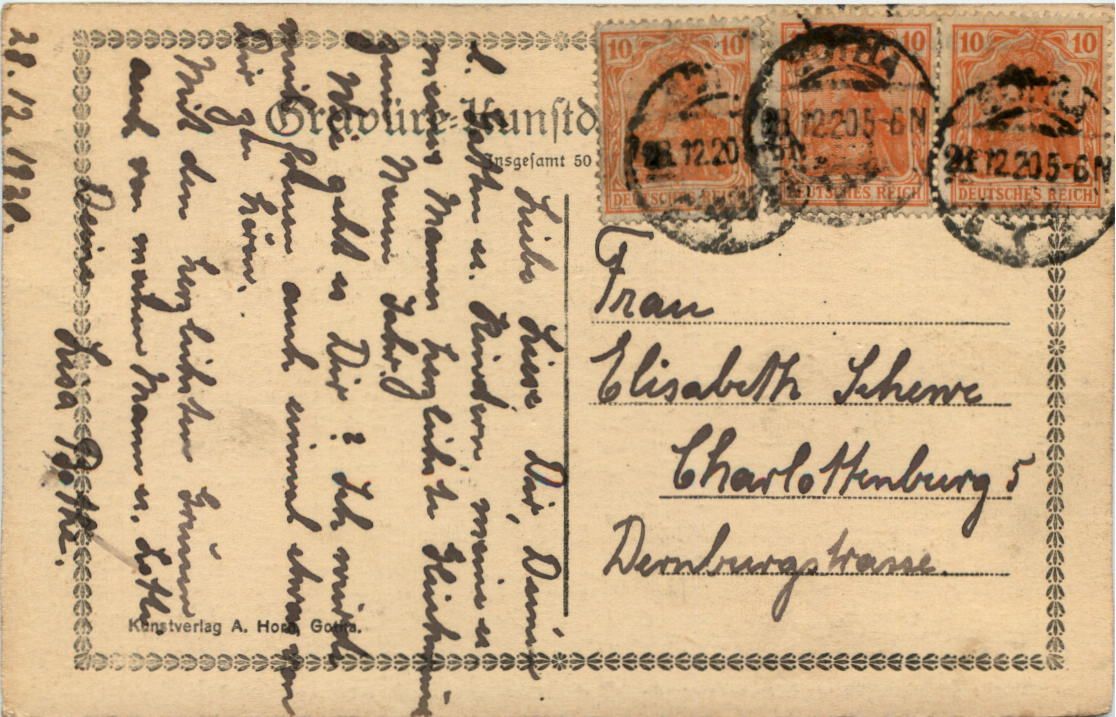 Gravüre-Kunstd
Insgesamt 50
28.12.1920.
Liebe Liese Dir, Deinem
l. Gatten u. Kindern, meine u.
meines Mannes herzlichste
zum Neuen Jahr!
Wie geht es Dir? Ich würde
mich freuen auch einmal etwas von
Dir zu hören.
Mit den herzlichsten Grüssen
auch von meinem Mann u. Lotte.
Deine
Lisa Bothe.
Kunstverlag A. Horn, Gotha.
10 10
10 10
10 10
DEUTSCHES REICH
DEUTSCHES REICH
DEUTSCHES REICH
28.12.20
GOTHA
28.12.20 5-6N
28.12.20 5-6N
Frau
Elisabeth Schewe
Charlottenburg 5
Dernburgstrasse.